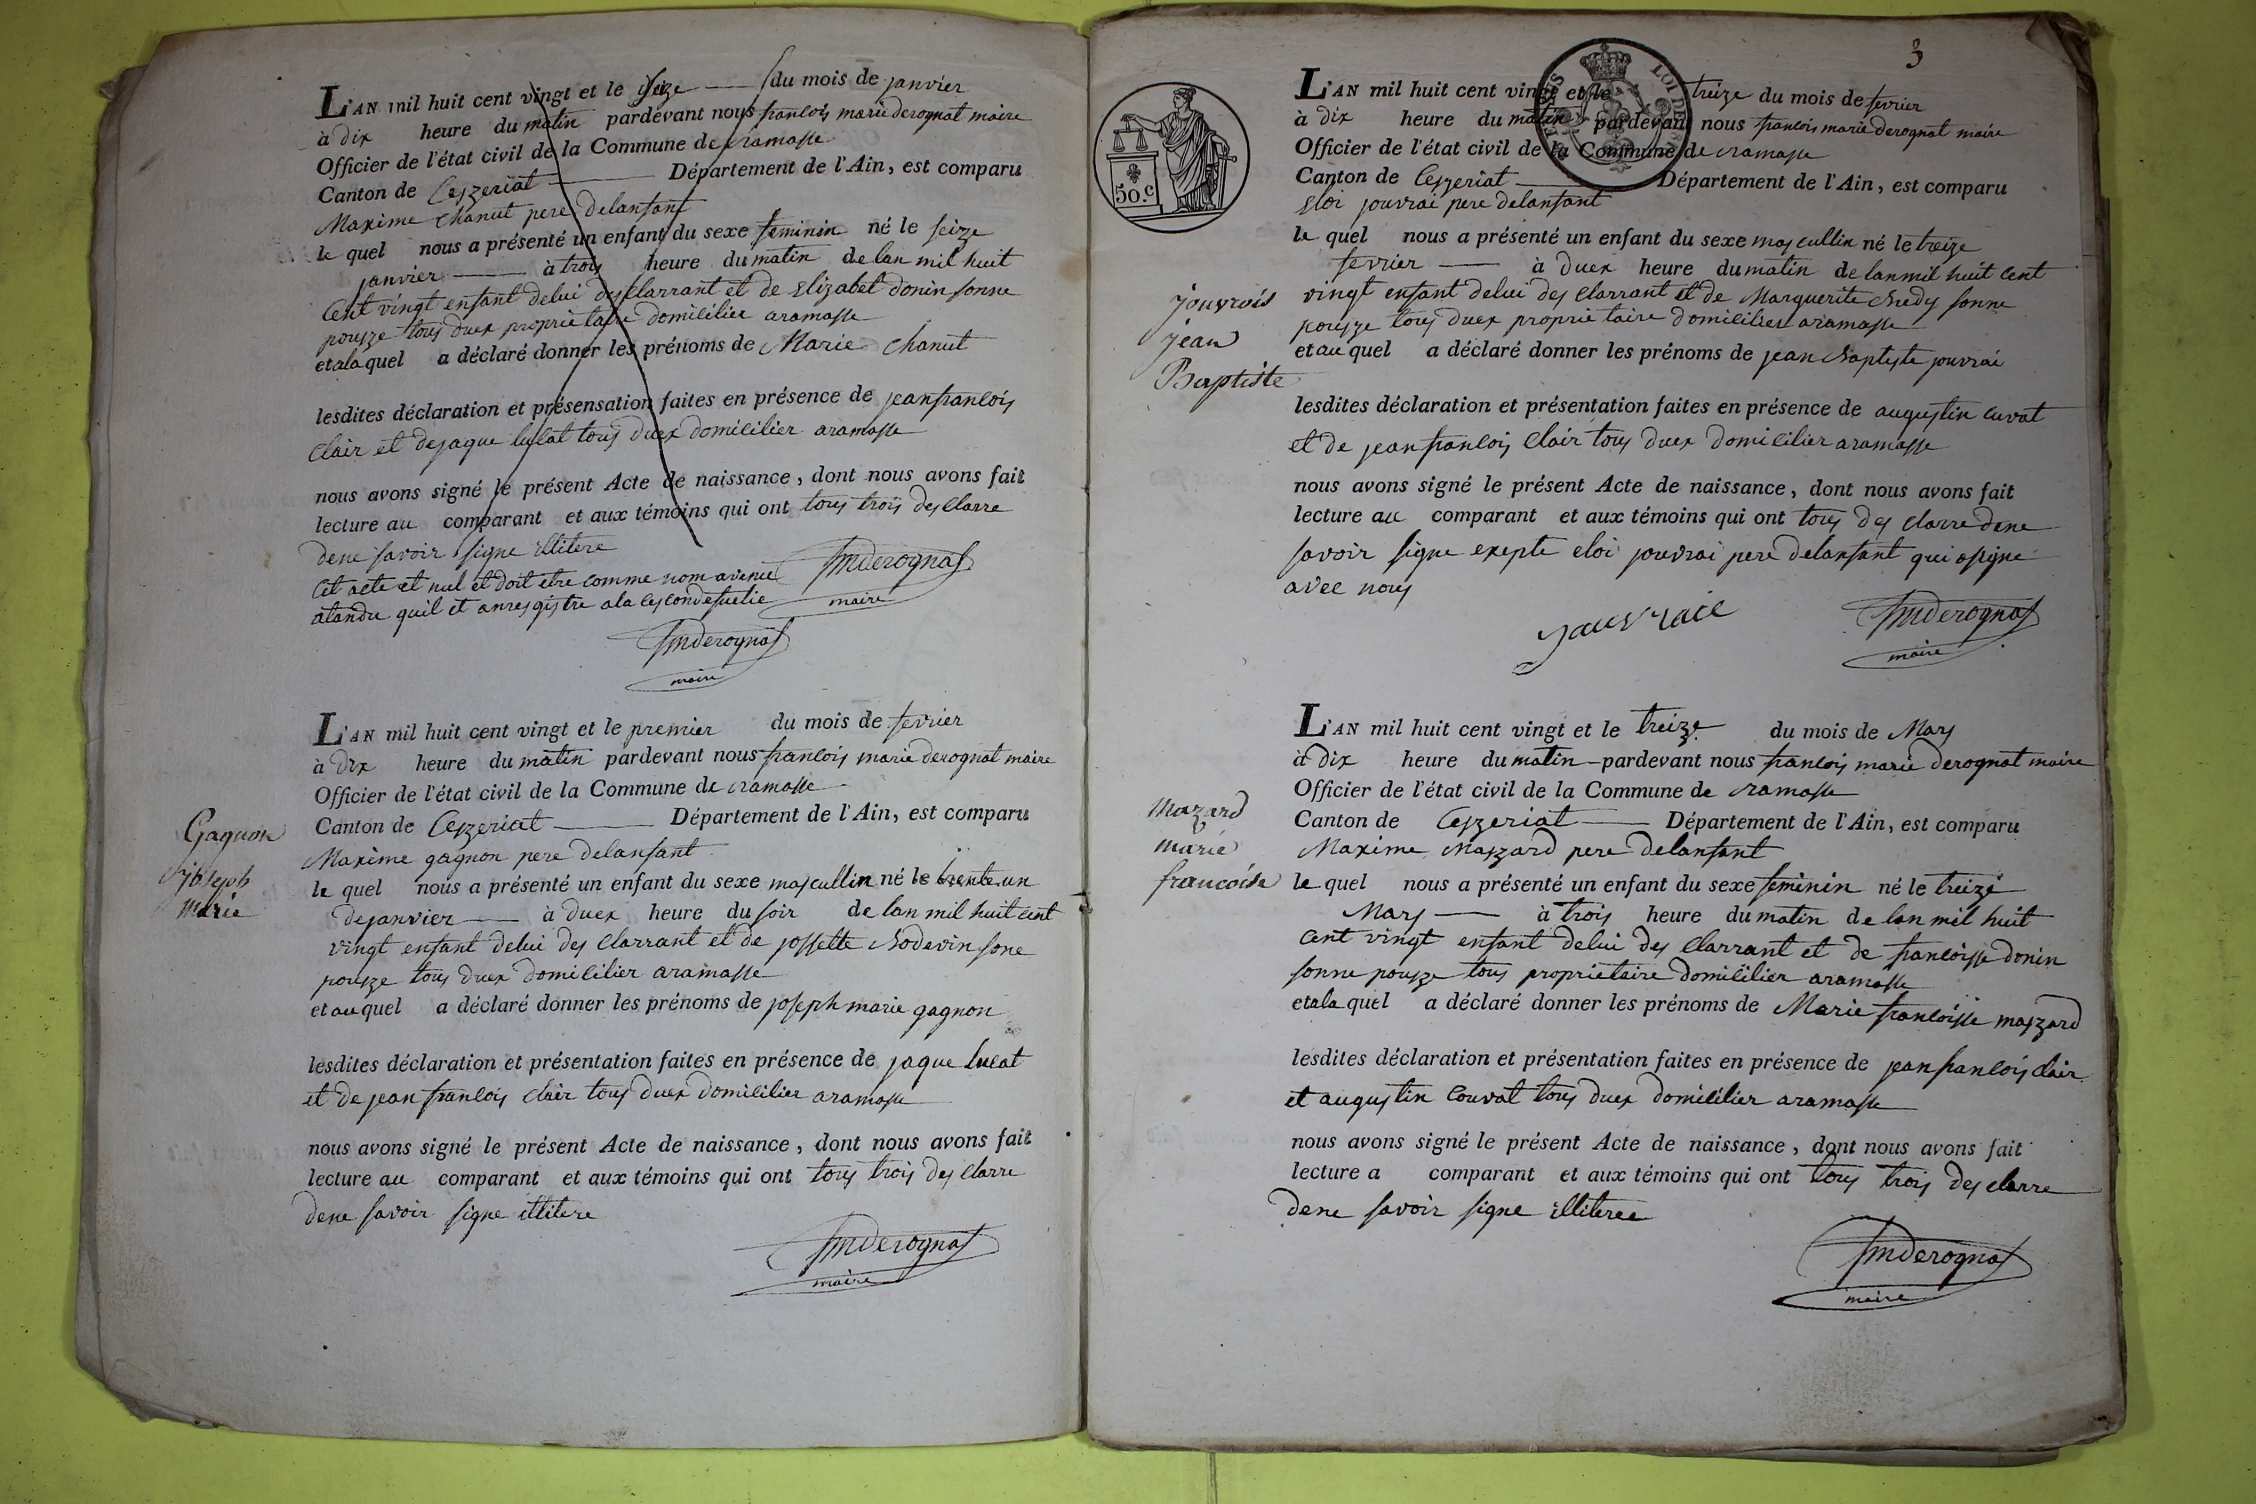 L'AN mil huit cent vingt et le seize du mois de janvier
à dix heure du matin pardevant nous francois marie derognat maire
Officier de l'état civil de la Commune de ramasse
Canton de Ceyzeriat Département de l'Ain, est comparu
Maxime chanut pere delanfant
le quel nous a présenté un enfant du sexe feminin né le seize
janvier à trois heure du matin de lan mil huit
Cent vingt enfant delui desclarrant et de Elizabet donin sonne
pousze tous duex proprietaire domicilier aramasse
etala quel a déclaré donner les prénoms de Marie chanut
lesdites déclaration et présensation faites en présence de jean francois
Clair et dejaque lucat tous duex domicilier aramasse
nous avons signé le présent Acte de naissance, dont nous avons fait
lecture au comparant et aux témoins qui ont tous trois desclarre
dene savoir signe illitere
Cet acte et nul et doit etre comme nom avenue
atandu quil et anresgistre ala
fmderognat
maire
fmderognat
maire
Gagnon
joseph
marie
L'AN mil huit cent vingt et le premier du mois de fevrier
à dix heure du matin pardevant nous francois marie derognat maire
Officier de l'état civil de la Commune de ramasse
Canton de Ceyzeriat Département de l'Ain, est comparu
Maxime gagnon pere delanfant
le quel nous a présenté un enfant du sexe mascullin né le trente un
dejanvier à duex heure du soir de lan mil huit cent
vingt enfant delui desclarrant et de jossette Bodevin sone
pousze tous duex domicilier aramasse
et au quel a déclaré donner les prénoms de joseph marie gagnon
lesdites déclaration et présentation faites en présence de jaque lucat
et de jean francois clair tous duex domicilier aramasse
nous avons signé le présent Acte de naissance, dont nous avons fait
lecture au comparant et aux témoins qui ont tous trois desclarre
dene savoir signe illitere
fmderognat
maire
3
50.c
LOI DE
jouvrois
jean
Baptiste
L'AN mil huit cent vingt et le treize du mois de fevrier
à dix heure du matin pardevant nous francois marie derognat maire
Officier de l'état civil de la Commune de ramasse
Canton de Ceyzeriat Département de l'Ain, est comparu
Eloi jouvrai pere delanfant
le quel nous a présenté un enfant du sexe mascullin né le treize
fevrier à duex heure du matin de lan mil huit cent
vingt enfant delui desclarrant et de Marguerite Bredy sonne
pousze tous duex proprietaire domicilier aramasse
et au quel a déclaré donner les prénoms de jean Baptyste jouvrai
lesdites déclaration et présentation faites en présence de augustin cuvat
et de jean francois Clair tous duex domicilier aramasse
nous avons signé le présent Acte de naissance, dont nous avons fait
lecture au comparant et aux témoins qui ont tous desclarre dene
savoir signe exepte eloi jouvrai pere delanfant qui asigne
avec nous
fmderognat
maire
Mazard
marie
francoise
L'AN mil huit cent vingt et le treize du mois de Mars
à dix heure du matin pardevant nous francois marie derognat maire
Officier de l'état civil de la Commune de ramasse
Canton de Ceyzeriat Département de l'Ain, est comparu
Maxime Maszard pere delanfant
le quel nous a présenté un enfant du sexe feminin né le treize
Mars à trois heure du matin de lan mil huit
cent vingt enfant delui desclarrant et de francoisse donin
sonne pousze tous proprietaire domicilier aramasse
etala quel a déclaré donner les prénoms de Marie francoisse maszard
lesdites déclaration et présentation faites en présence de jean francois clair
et augustin Couvat tous duex domicilier aramasse
nous avons signé le présent Acte de naissance, dont nous avons fait
lecture a comparant et aux témoins qui ont tous trois desclarre
dene savoir signe illiteree
fmderognat
maire